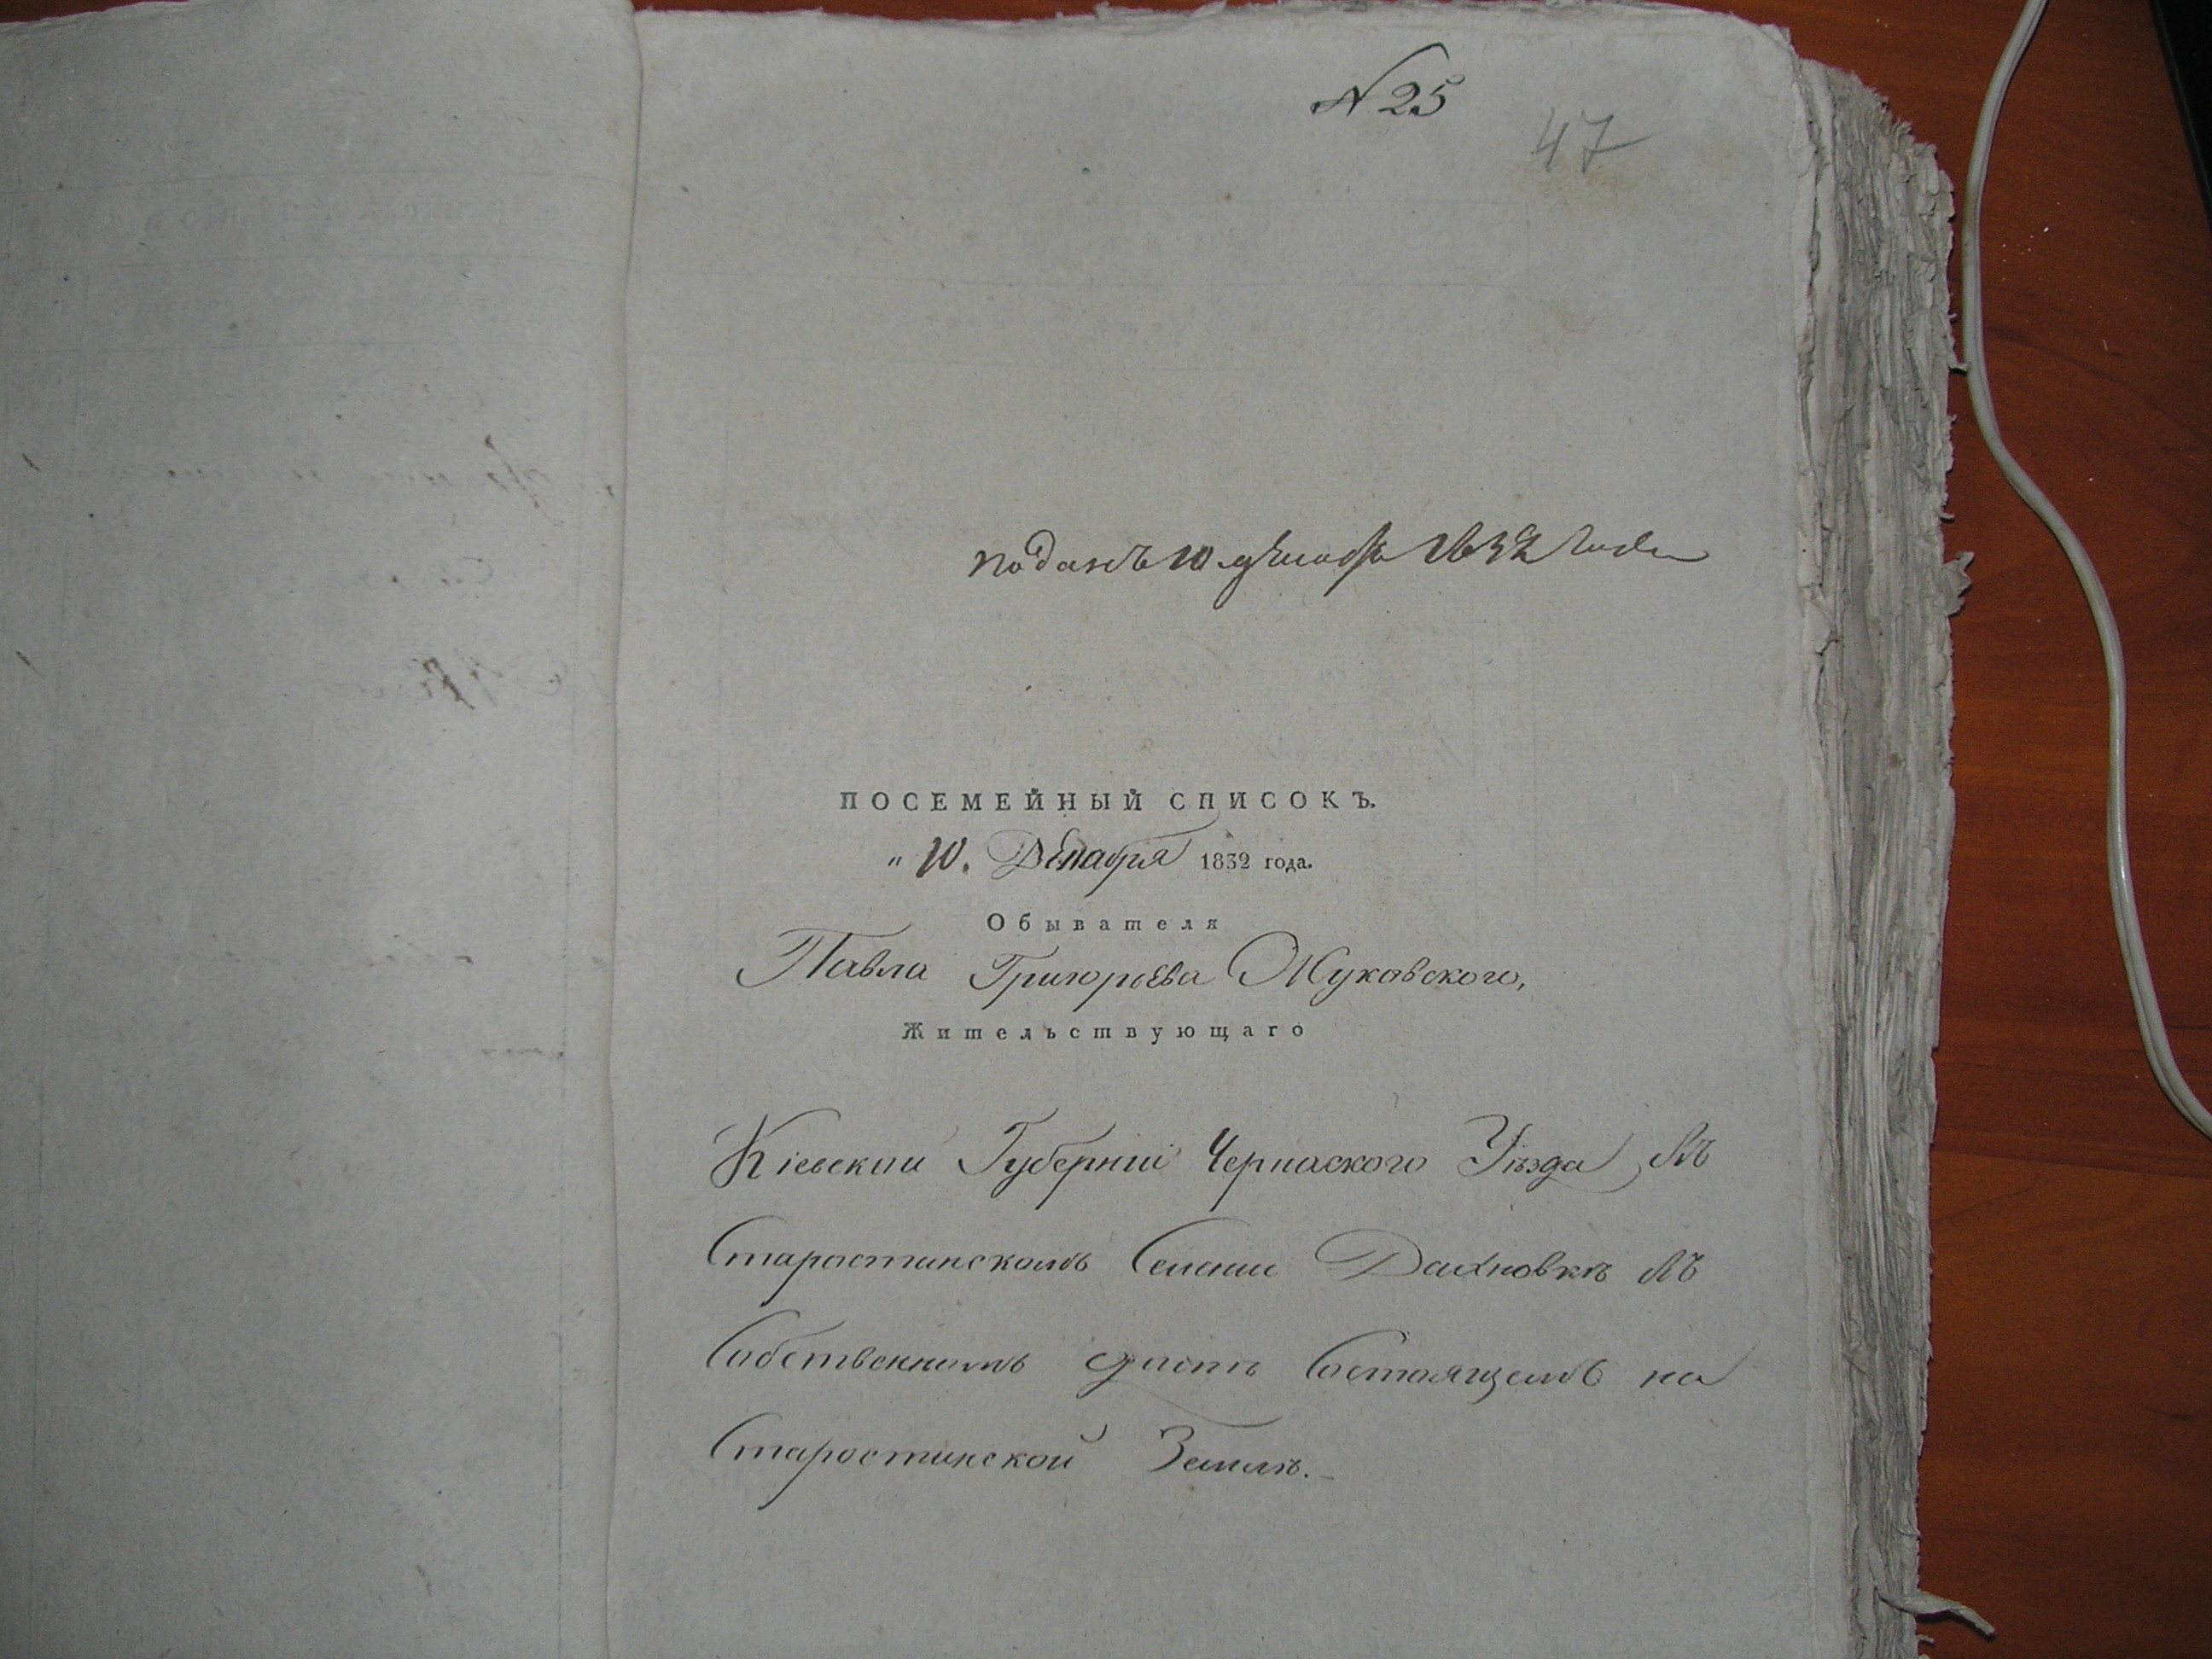 N 25
47
поданъ 10 декабря 1832 года
ПОСЕМЕЙНЫЙ СПИСОКЪ.
„ 10. Декабря 1832 года.
Обывателя
Павла Григорьева Жуковского,
Жительствующаго
Кіевской Губерніи Черкаского Уѣзда Въ
Старостинскомъ Селеніи Дахновкѣ Въ
Собственномъ домѣ Состоящемъ на
Старостинской Землѣ.